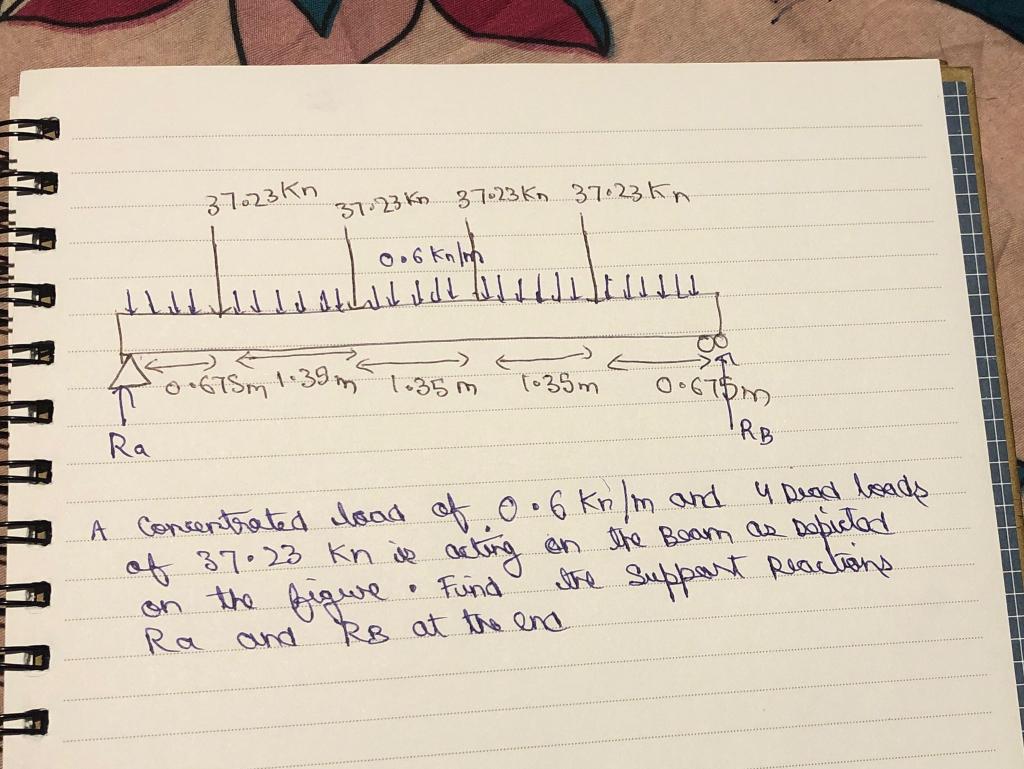 37.23Kn 37.23Kn 37.23Kn 37.23Kn
0.6 Kn/m
0.675m 1.35m 1.35m 1.35m 0.675m
Ra
RB
A Concentrated load of 0.6 Kn/m and 4 Dead loads
of 37.23 Kn is acting on the Beam as Depicted
on the figure. Find the Support Reactions
Ra and RB at the end